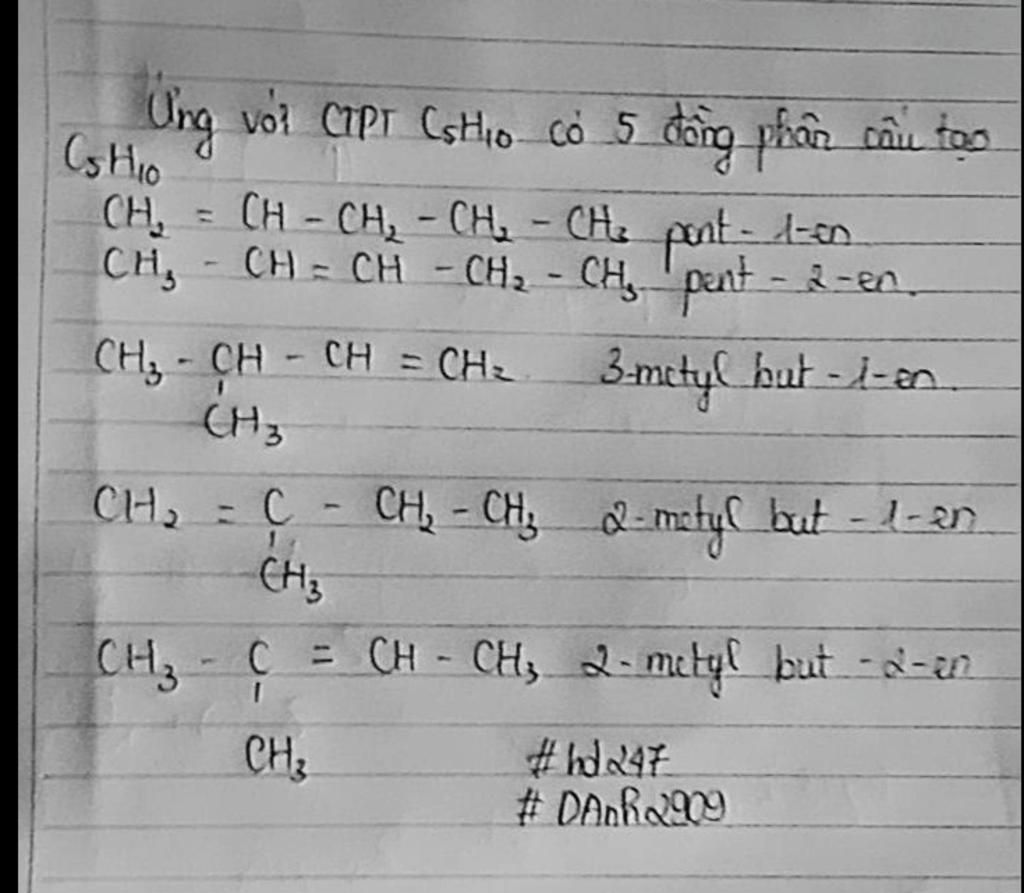 Ứng với CTPT C₅H₁₀ có 5 đồng phân cấu tạo
C₅H₁₀
CH₂ = CH - CH₂ - CH₂ - CH₃ pent - 1-en
CH₃ - CH = CH - CH₂ - CH₃ pent - 2-en.
CH₃ - CH - CH = CH₂ 3-metyl but - 1-en.
CH₃
CH₂ = C - CH₂ - CH₃ 2-metyl but - 1-en
CH₃
CH₃ - C = CH - CH₃ 2-metyl but - 2-en
CH₃
#hd247
#DAnR2909